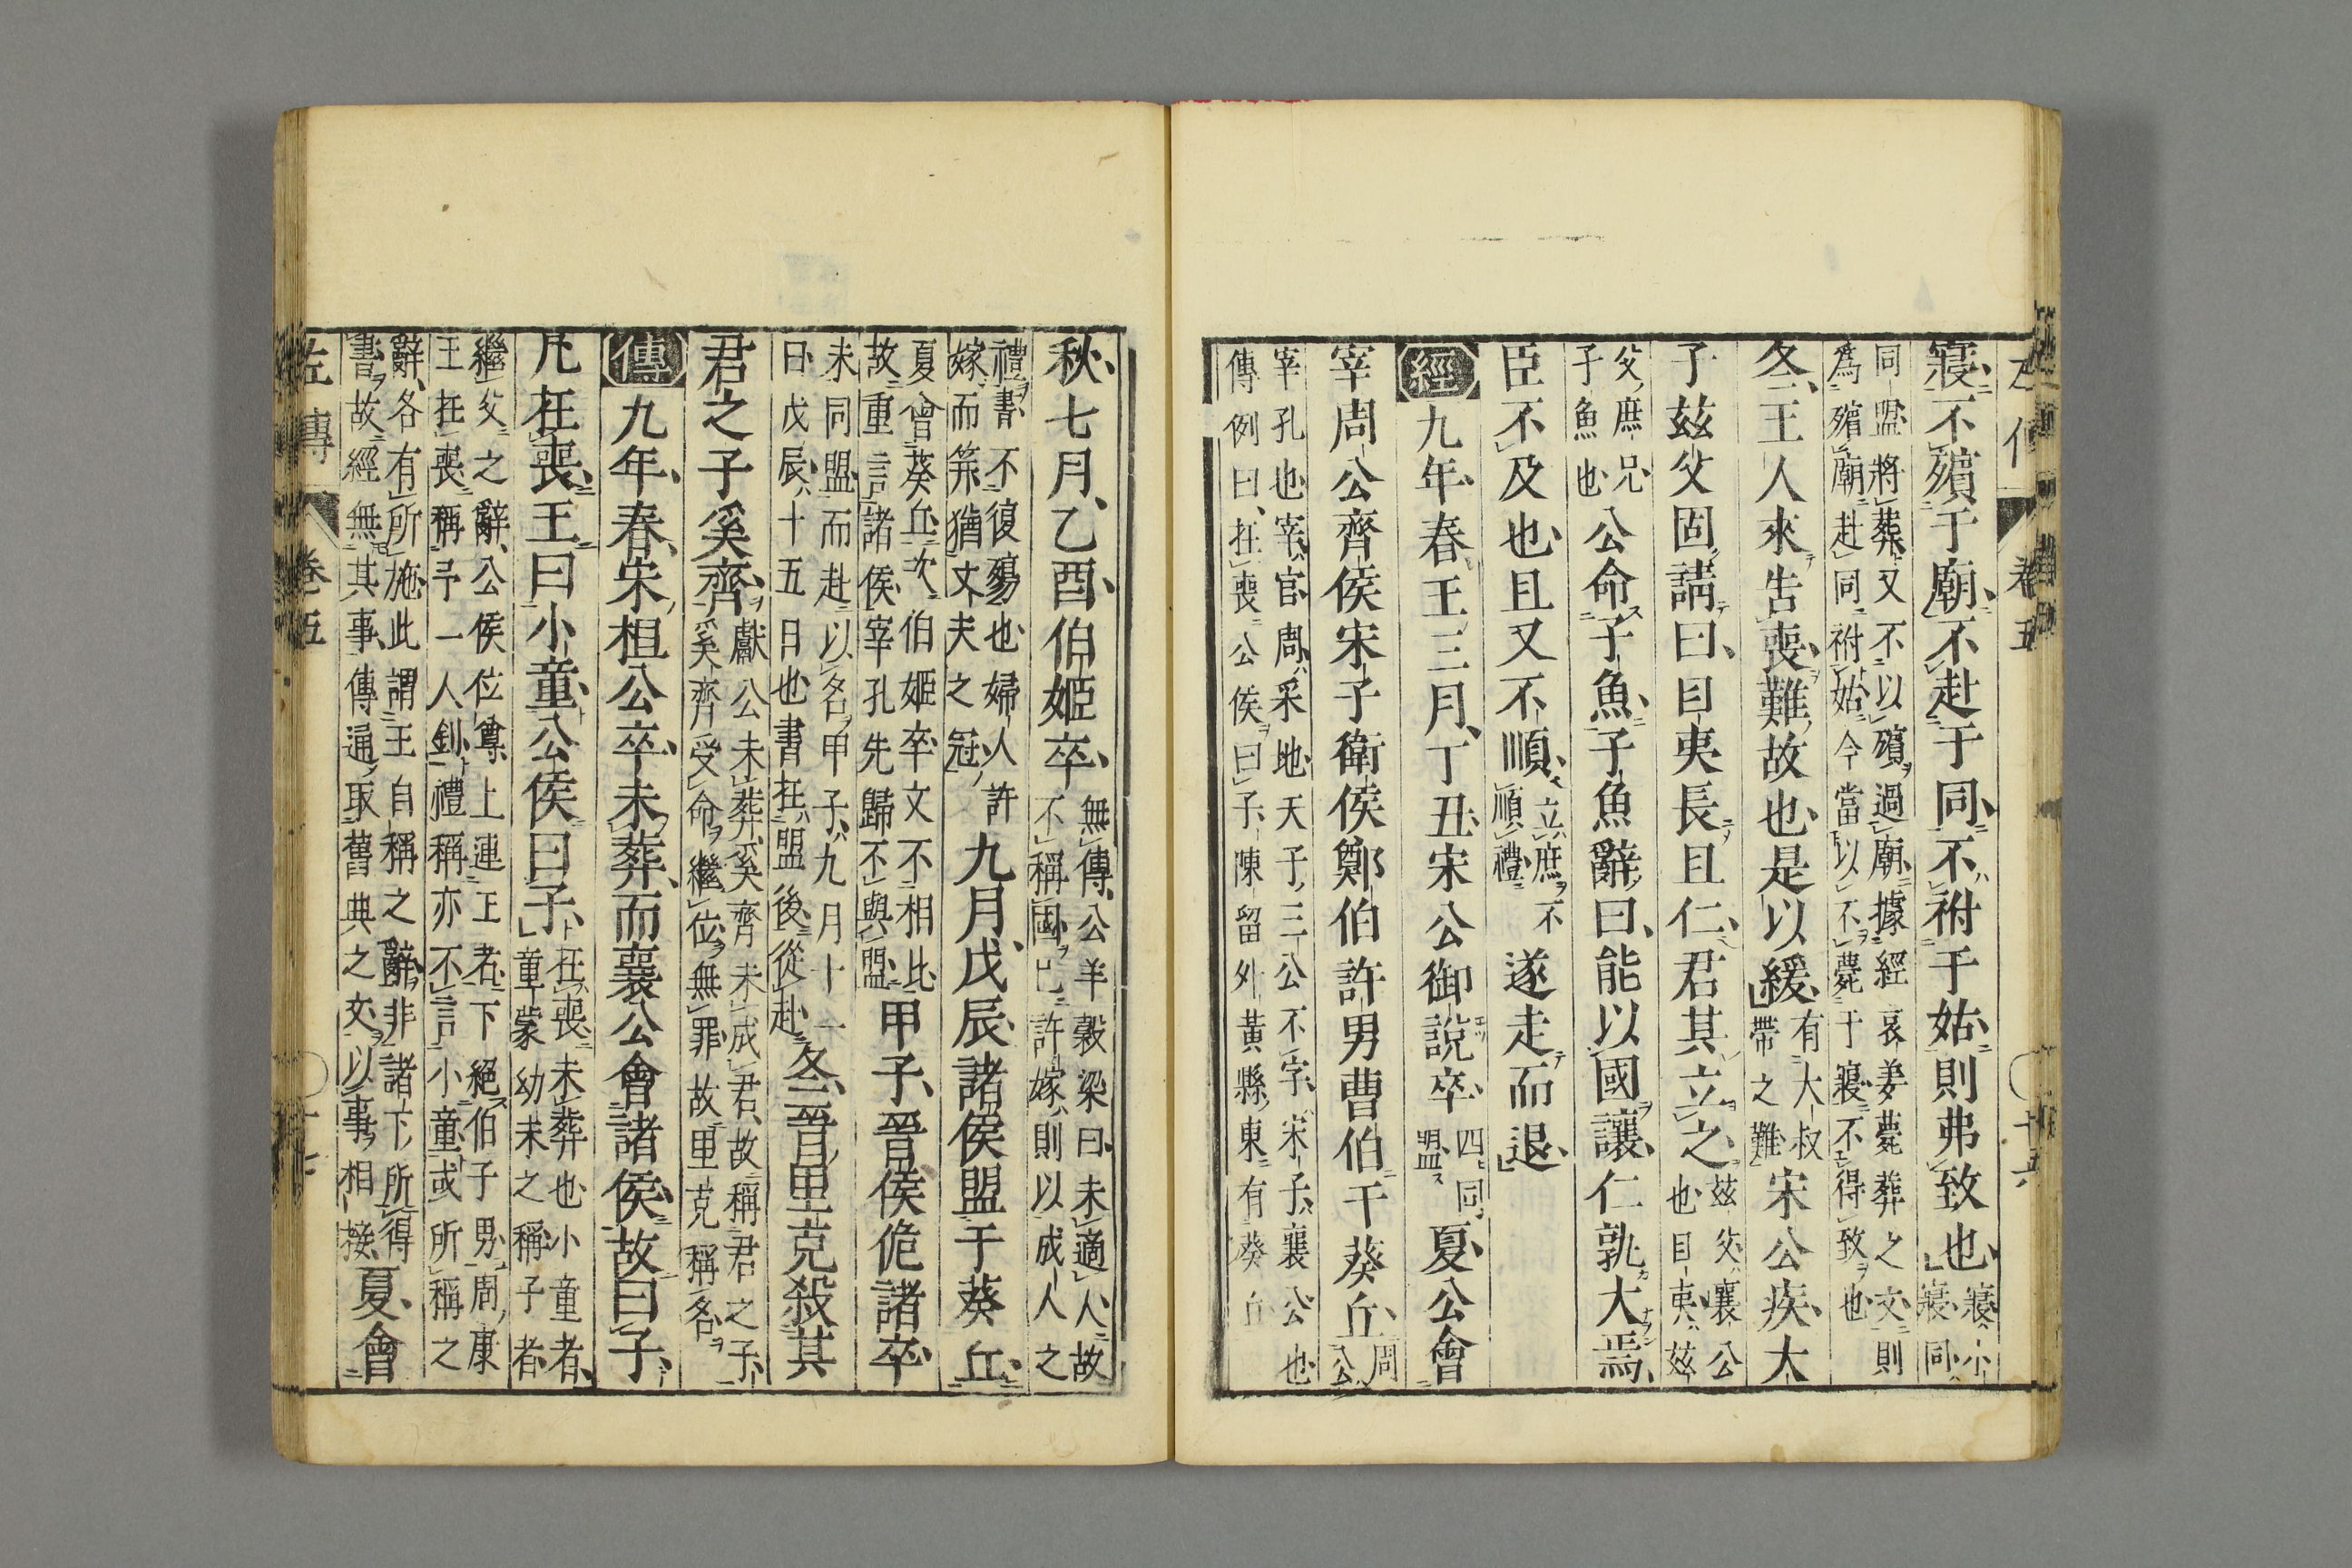 寢不殯于廟不赴于同不祔于姑則弗致也寢小寢同
同盟將葬又不以殯過廟據經哀姜薨葬之文則
爲殯廟赴同祔姑今當以不薨于寢不得致也
冬王人來告喪難故也是以緩有大叔帶之難宋公疾大
子兹父固請曰目夷長且仁君其立之兹父襄公也目夷兹
父庶兄子魚也公命子魚子魚辭曰能以國讓仁孰大焉
臣不及也且又不順立庶不順禮遂走而退
經九年春王三月丁丑宋公御說卒四同盟夏公會
宰周公齊侯宋子衛侯鄭伯許男曹伯于葵丘周公
宰孔也宰官周采地天子三公不字宋子襄公也
傳例曰在喪公侯曰子陳留外黃縣東有葵丘
秋七月乙酉伯姬卒無傳公羊穀梁曰未適人故不稱國已許嫁則以成人之
禮書不復殤也婦人許嫁而笄猶丈夫之冠九月戊辰諸侯盟于葵丘
夏會葵丘次伯姬卒文不相比故重言諸侯宰孔先歸不與盟甲子晉侯佹諸卒
未同盟而赴以名甲子九月十一日戊辰十五日也書在盟後從赴冬晉里克殺其
君之子奚齊獻公未葬奚齊未成君故稱君之子奚齊受命繼位無罪故里克稱名
傳九年春宋桓公卒未葬而襄公會諸侯故曰子
凡在喪王曰小童公侯曰子在喪未葬也小童者童蒙幼末之稱子者
繼父之辭公侯位尊上連王者下絕伯子男周康
王在喪稱予一人釗禮稱亦不言小童或所稱之
辭各有所施此謂王自稱之辭非諸下所得
書故經無其事傳通取舊典之文以事相接夏會
左傳 卷五 十七